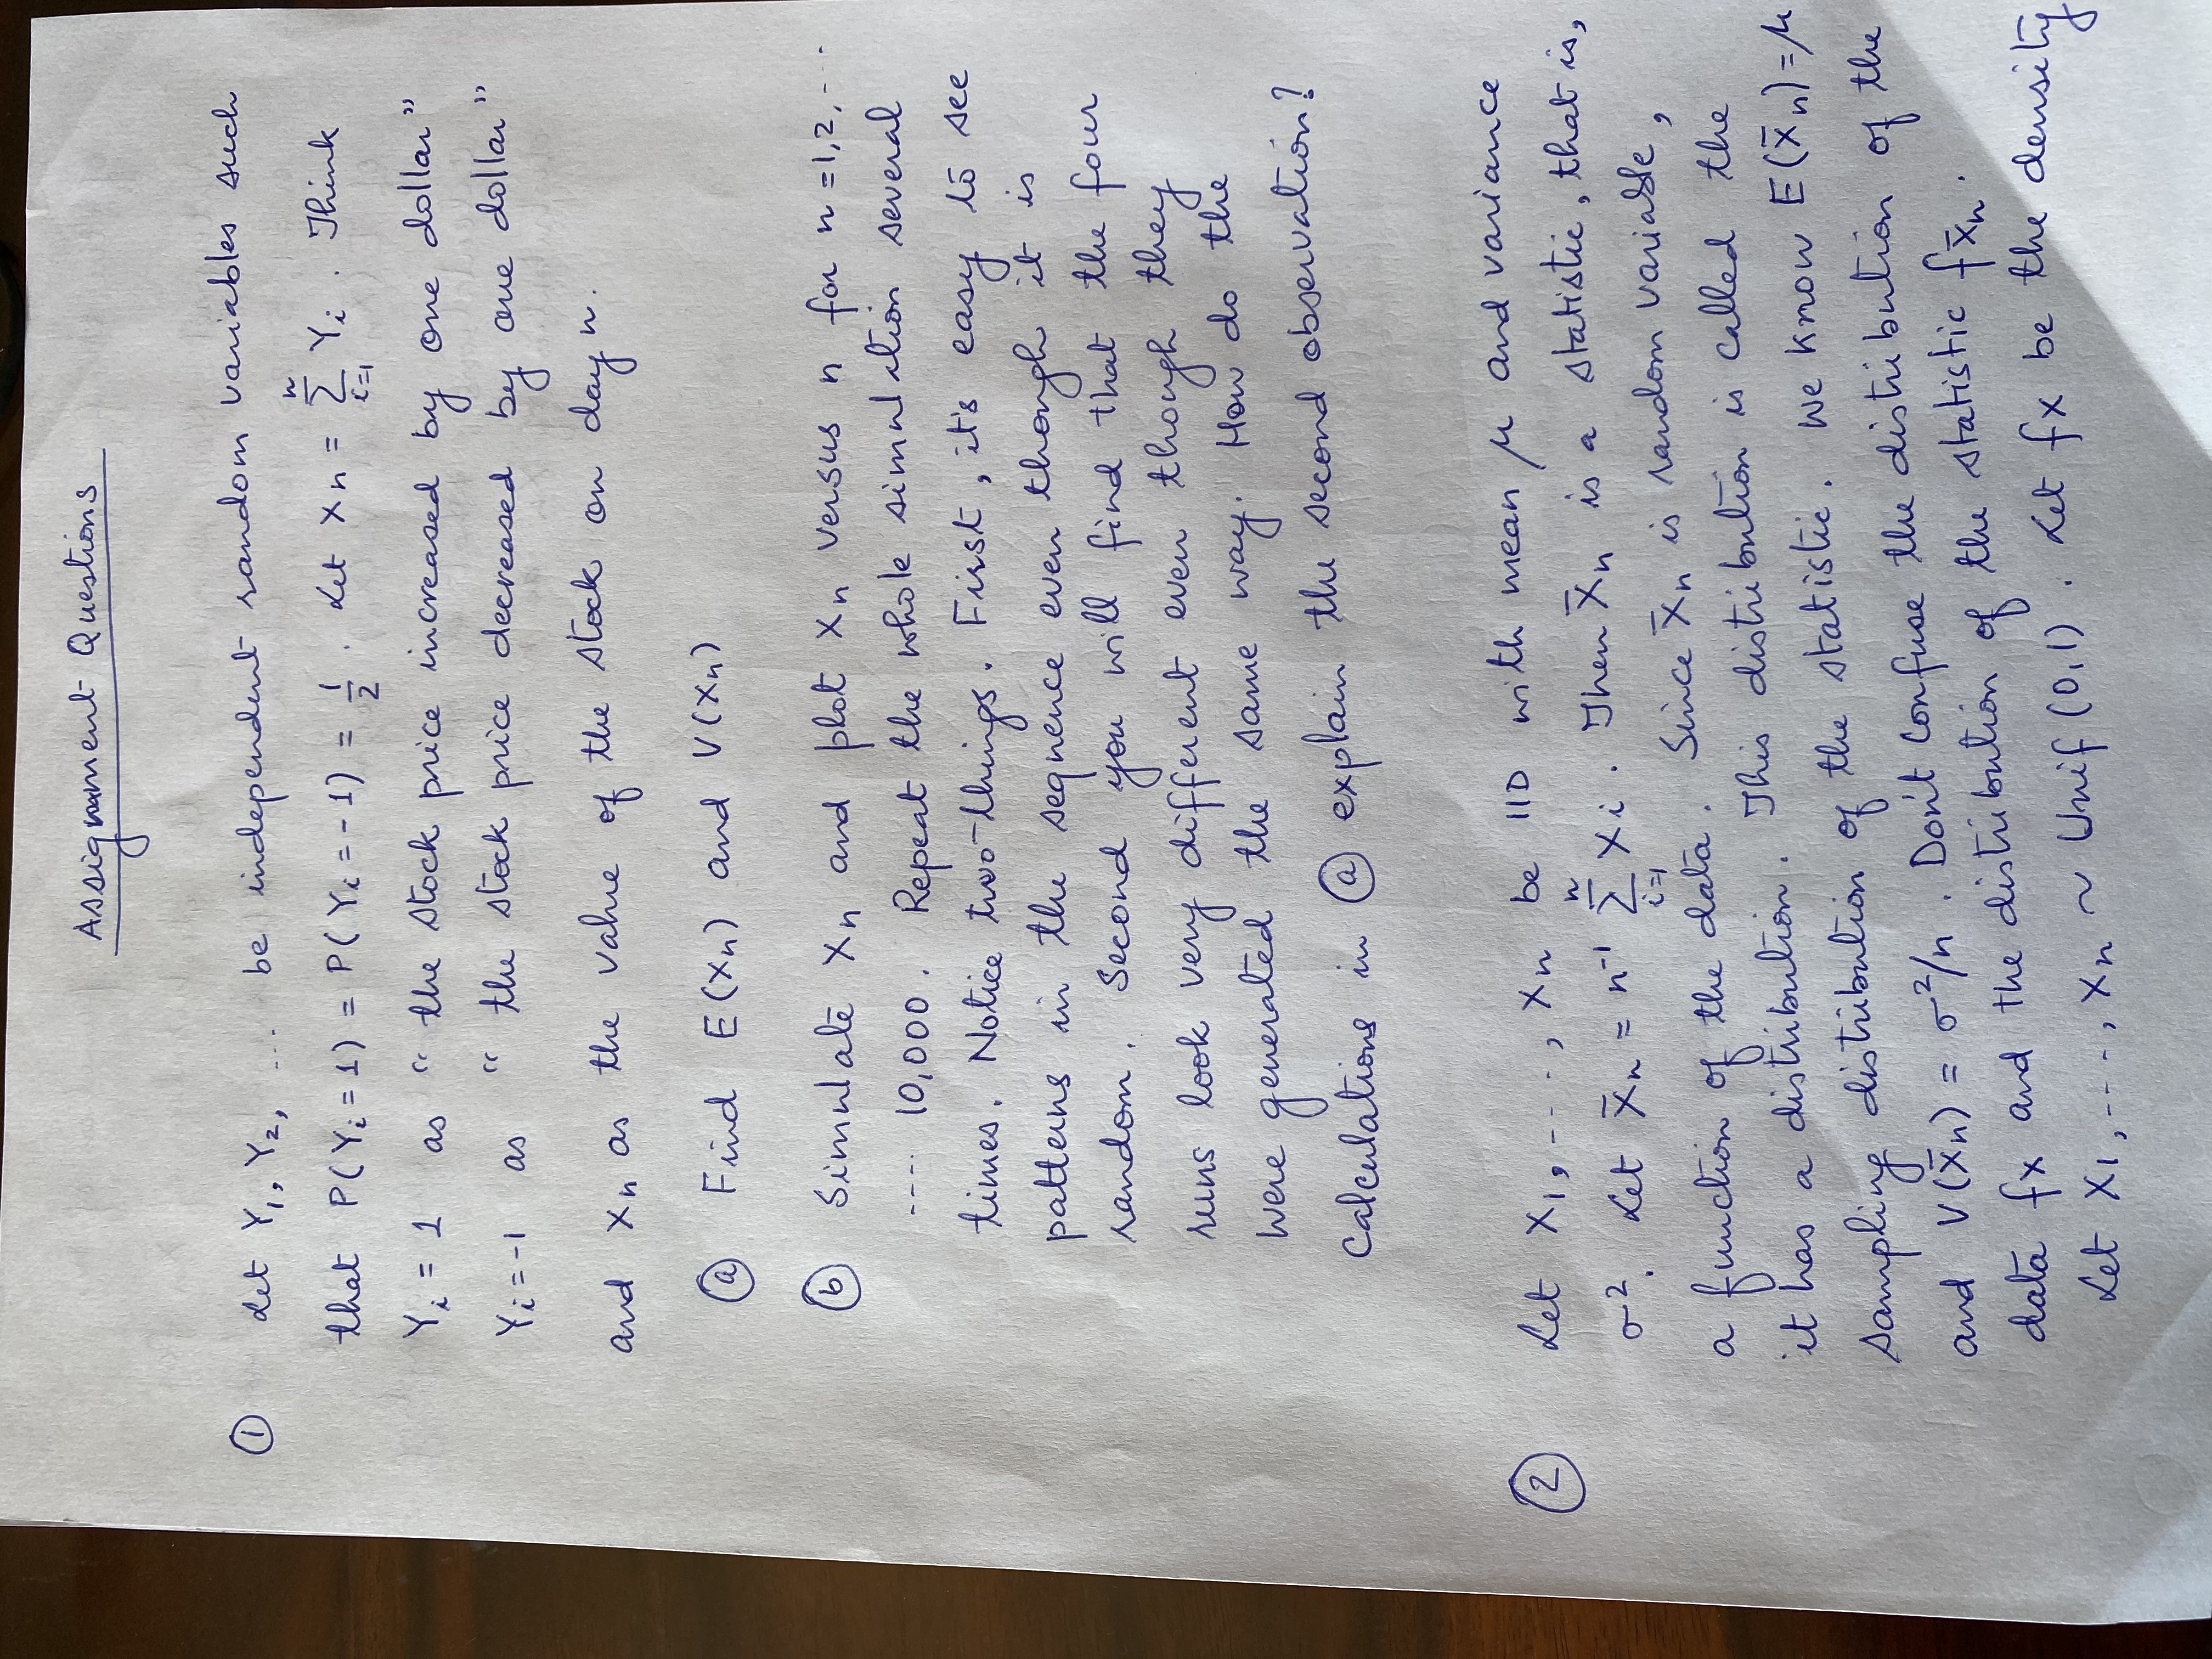 Assignment Questions
① Let Y₁, Y₂, ... be independent random variables such
that P(Yᵢ = 1) = P(Yᵢ = -1) = 1/2 . Let Xn = ∑ᵢ₌₁ⁿ Yᵢ . Think
Yᵢ = 1 as "the stock price increased by one dollar"
Yᵢ = -1 as "the stock price decreased by one dollar"
and Xn as the value of the stock on day n.
ⓐ Find E(Xn) and V(Xn)
ⓑ Simulate Xn and plot Xn versus n for n = 1,2, ...
.... 10,000. Repeat the whole simulation several
times. Notice two things. First, it's easy to see
patterns in the sequence even though it is
random. Second you will find that the four
runs look very different even though they
were generated the same way. How do the
Calculations in ⓐ explain the second observation?
② Let X₁, ...., Xn be IID with mean μ and variance
σ². Let X̄n = n⁻¹ ∑ᵢ₌₁ⁿ Xᵢ . Then X̄n is a statistic, that is,
a function of the data. Since X̄n is random variable,
it has a distribution. This distribution is called the
sampling distribution of the statistic. We know E(X̄n) = μ
and V(X̄n) = σ²/n . Don't confuse the distribution of the
data fx and the distribution of the statistic fX̄n .
Let X₁, ...., Xn ~ Unif (0,1) . Let fx be the density